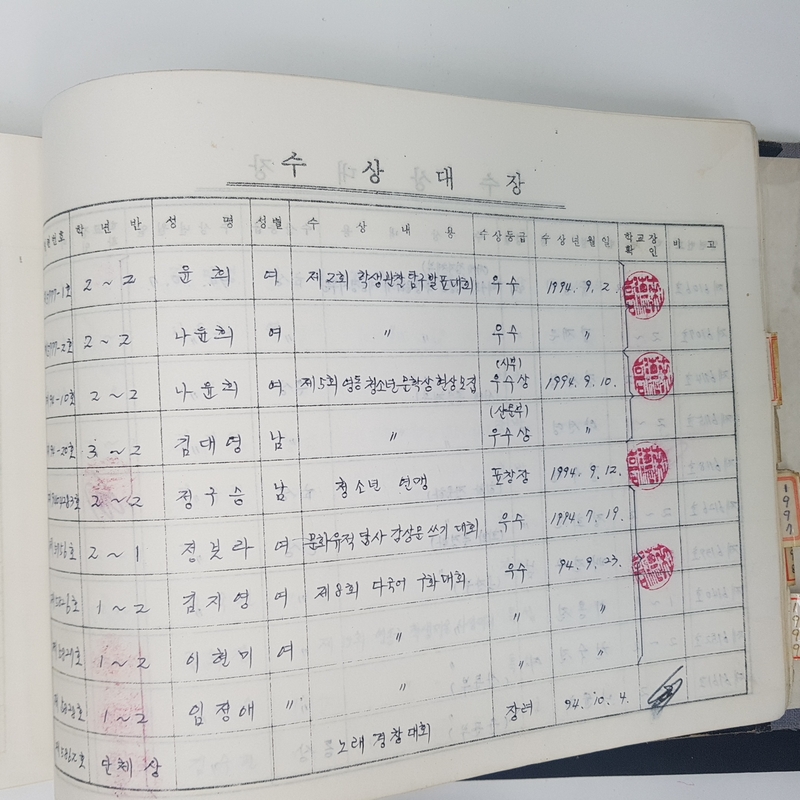 수 상 대 장
번호 학 년 반 성 명 성별 수 상 내 용 수상등급 수 상 년 월 일 학교장 확 인 비 고
2~2 윤희 여 제2회 학생관찰탐구발표대회 우수 1994. 9. 2.
2~2 나윤희 여 〃 우수 〃
2~2 나윤희 여 제5회 영동 청소년 문학상 현상모집 (시부) 우수상 1994. 9. 10.
3~2 김대영 남 〃 (산문부) 우수상 〃
2~2 정구승 남 청소년 연맹 표창장 1994. 9. 12.
2~1 정보라 여 문화유적 답사 감상문 쓰기 대회 우수 1994. 7. 19.
1~2 김지영 여 제8회 다국어 구화대회 우수 94. 9. 23.
1~2 이현미 여 〃 〃 〃
1~2 임정애 〃 〃 〃 〃
단체상 노래 경창대회 장려 94. 10. 4.
1997
1999